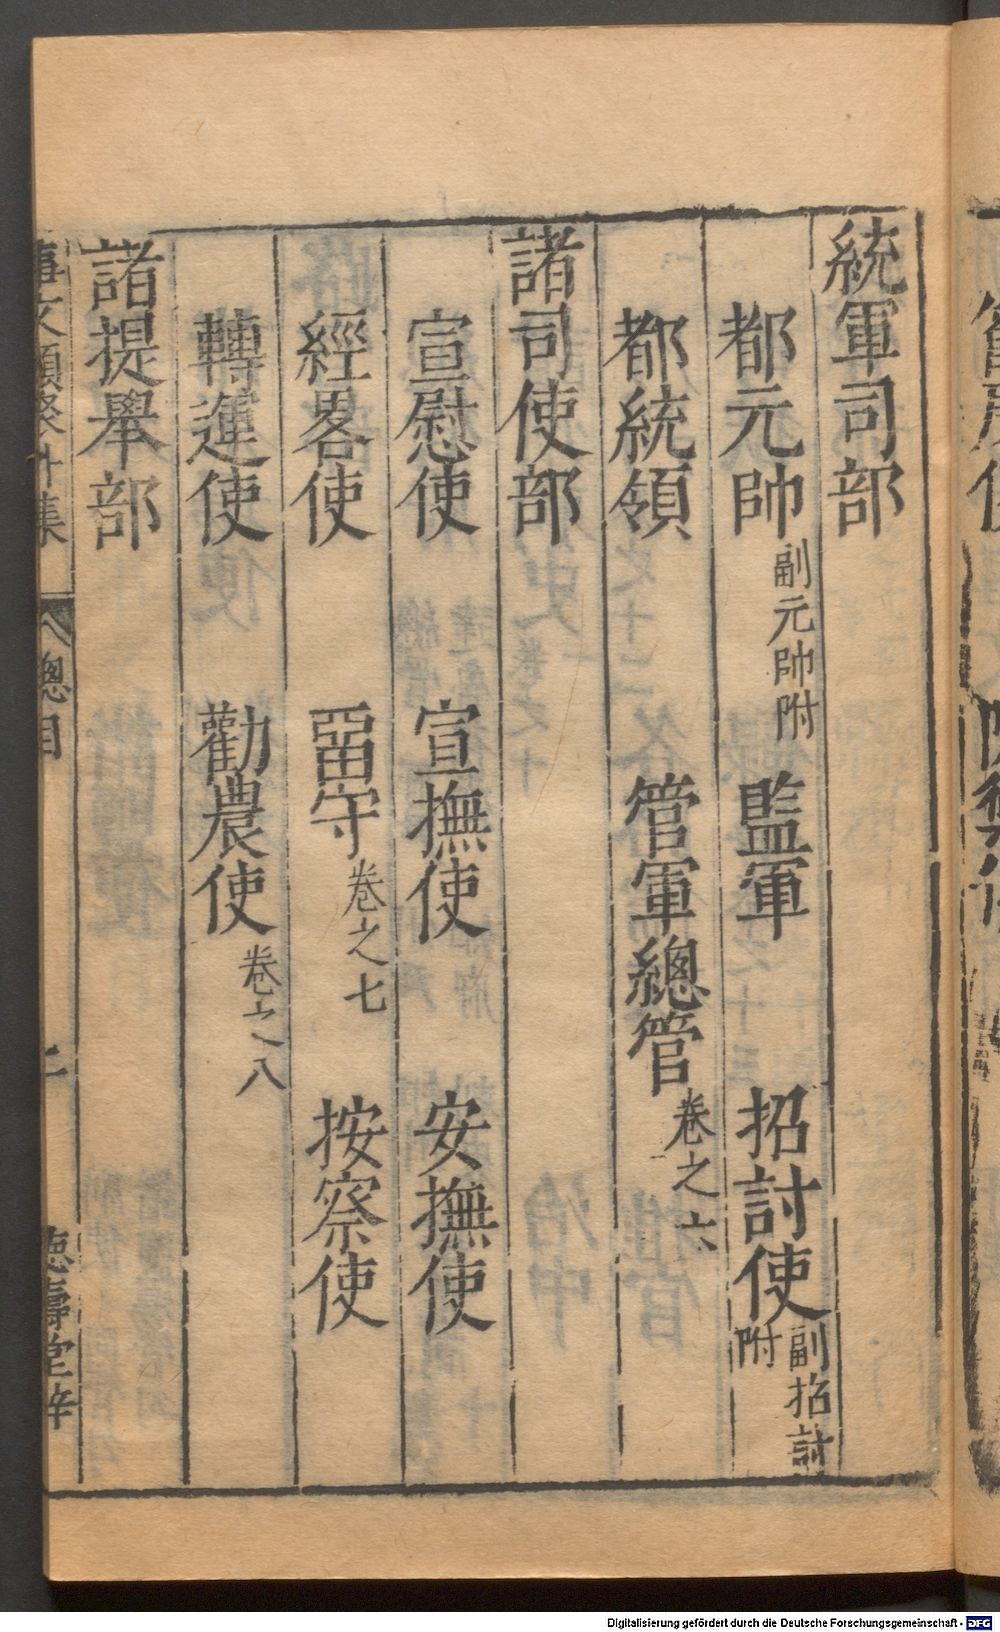 統軍司部
都元帥副元帥附 監軍 招討使副招討附
都統領 管軍總管卷之六
諸司使部
宣慰使 宣撫使 安撫使
經畧使 畱守卷之七 按察使
轉運使 勸農使卷之八
諸提舉部
總目
德壽堂梓
Digitalisierung gefördert durch die Deutsche Forschungsgemeinschaft - DFG